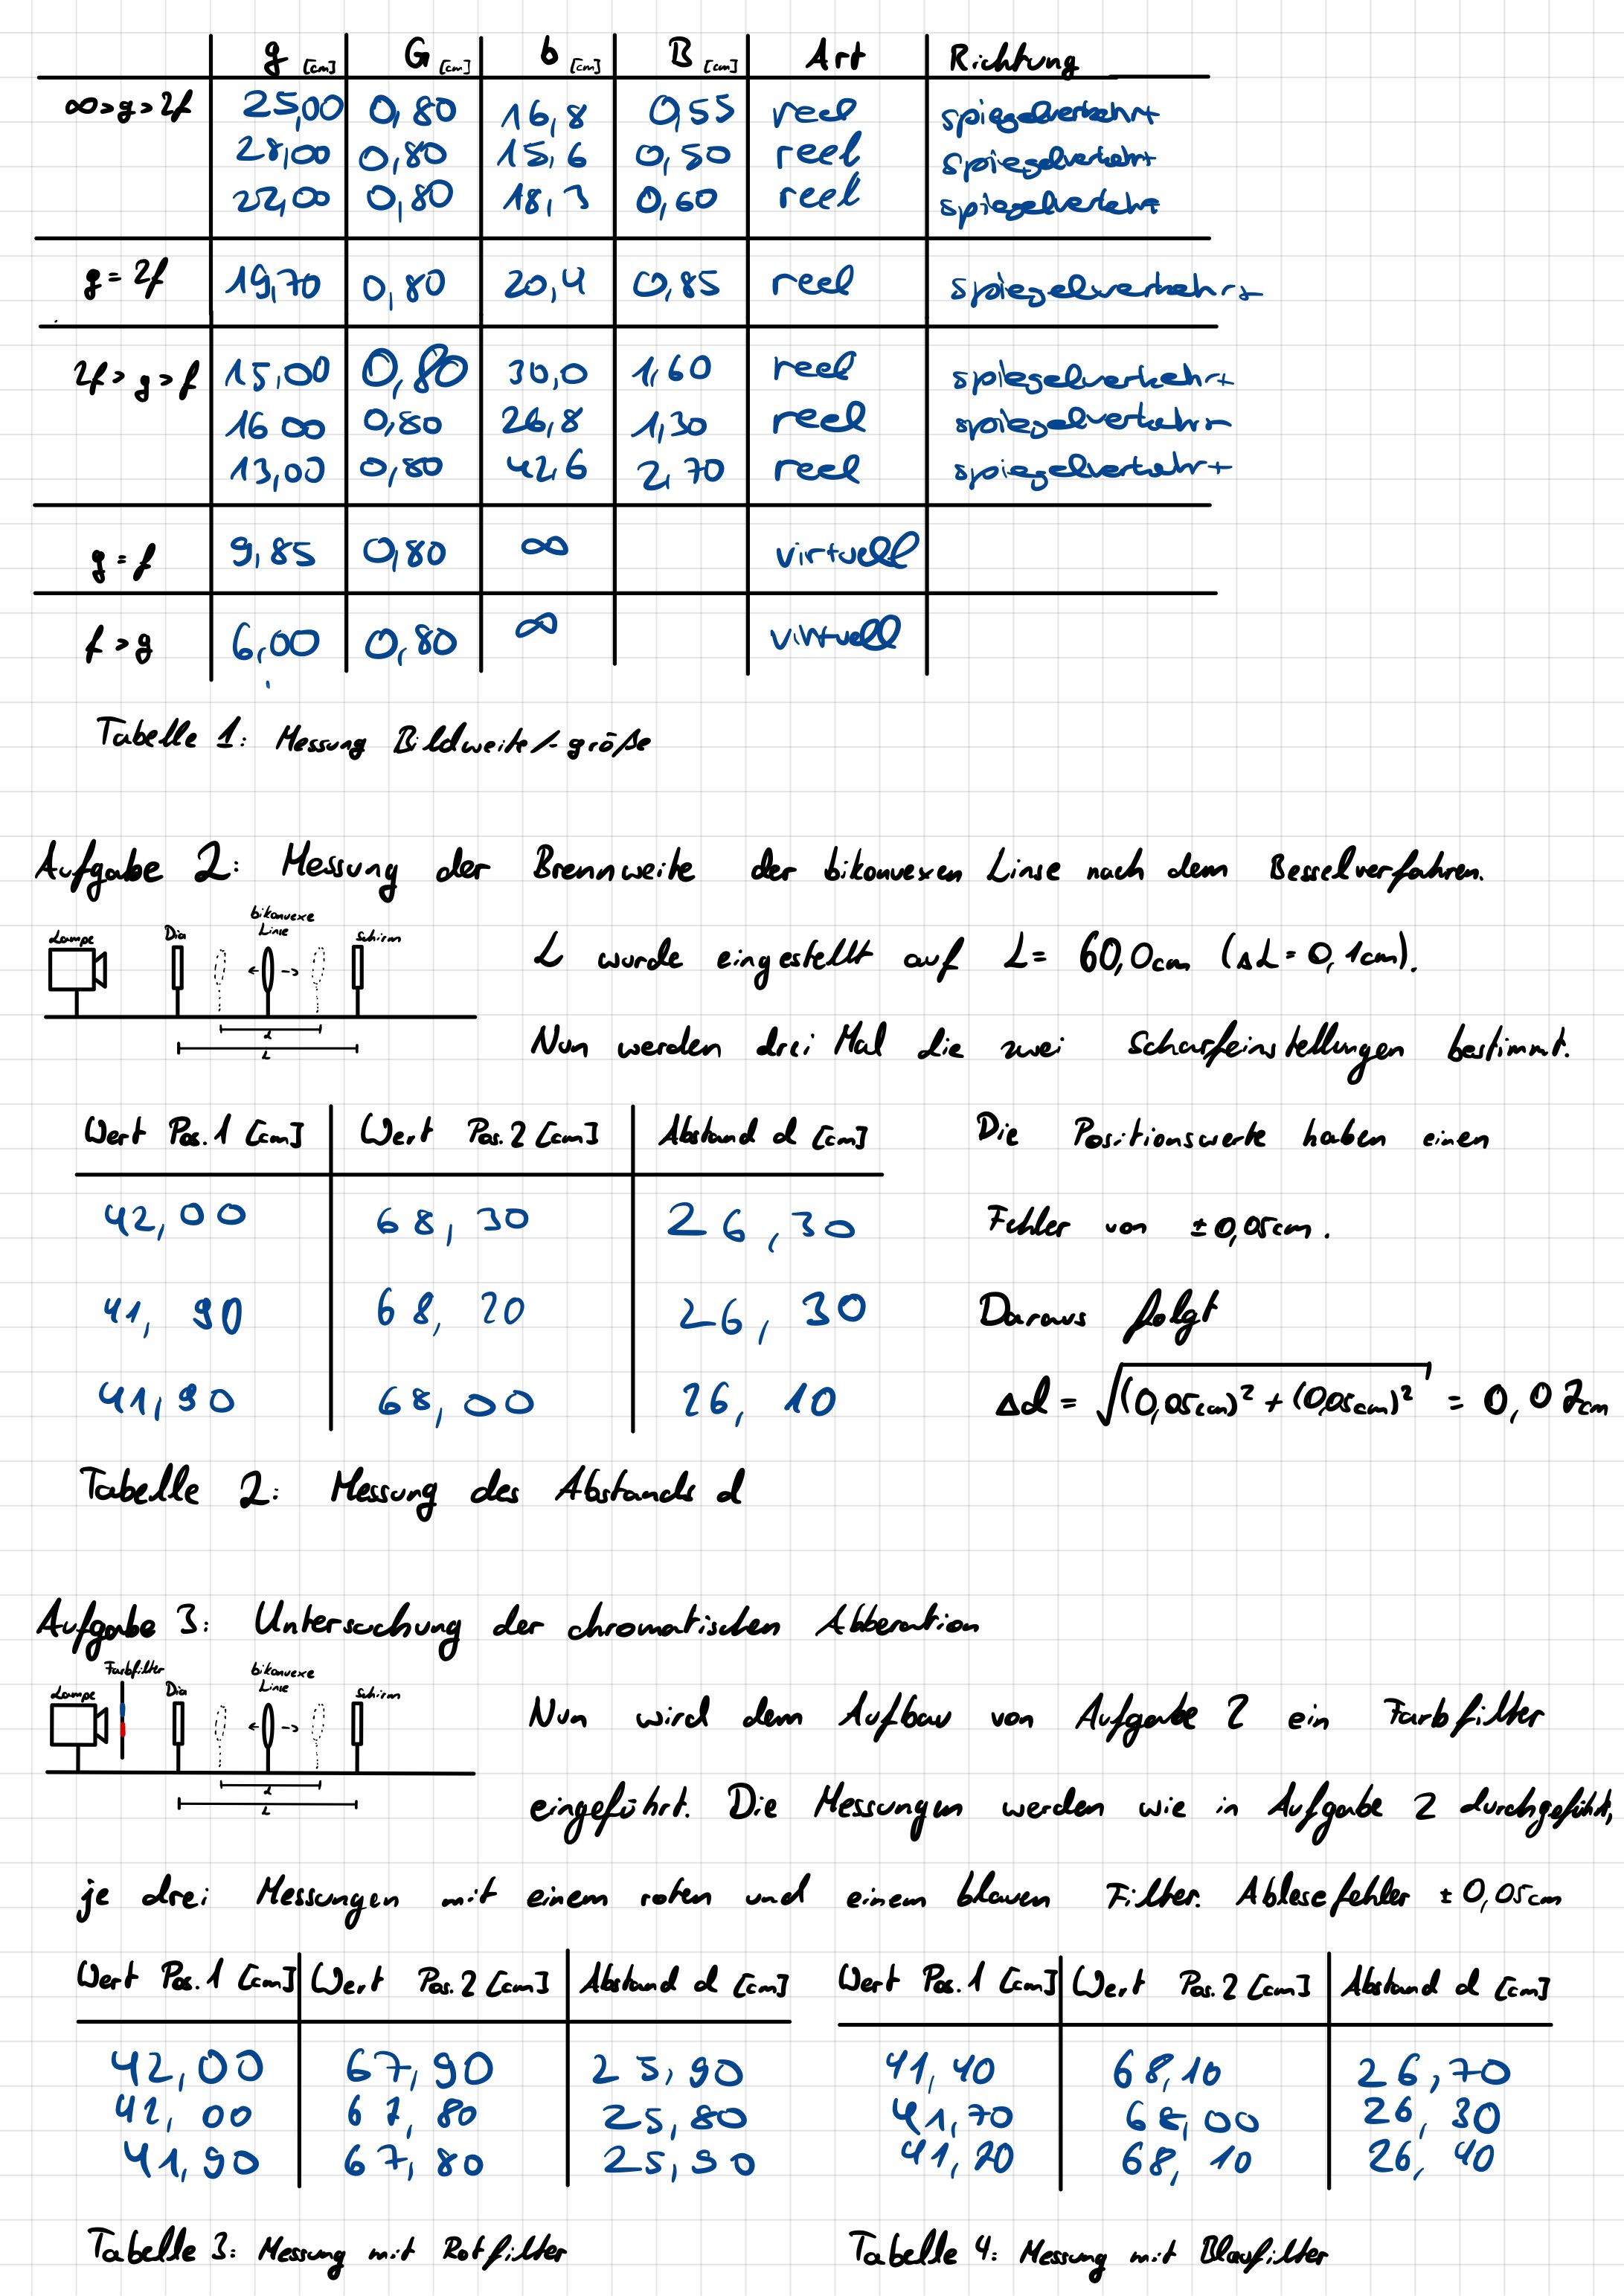 g [cm] G [cm] b [cm] B [cm] Art Richtung
∞>g>2f 25,00 0,80 16,8 0,55 reel spiegelverkehrt
28,00 0,80 15,6 0,50 reel spiegelverkehrt
22,00 0,80 18,3 0,60 reel spiegelverkehrt
g=2f 19,70 0,80 20,4 0,85 reel spiegelverkehrt
2f>g>f 15,00 0,80 30,0 1,60 reel spiegelverkehrt
16 00 0,80 26,8 1,30 reel spiegelverkehrt
13,00 0,80 42,6 2,70 reel spiegelverkehrt
g=f 9,85 0,80 ∞ virtuell
f>g 6,00 0,80 ∞ virtuell
Tabelle 1: Messung Bildweite/-größe
Aufgabe 2: Messung der Brennweite der bikonvexen Linse nach dem Besselverfahren.
Lampe Dia bikonvexe Linse Schirm
d
L
L wurde eingestellt auf L= 60,0cm (ΔL=0,1cm).
Nun werden drei Mal die zwei Scharfeinstellungen bestimmt.
Wert Pos.1 [cm] Wert Pos.2 [cm] Abstand d [cm]
42,00 68,30 26,30
41,90 68,20 26,30
41,90 68,00 26,10
Die Positionswerte haben einen
Fehler von ±0,05cm.
Daraus folgt
Δd = √((0,05cm)² + (0,05cm)²) = 0,07cm
Tabelle 2: Messung des Abstands d
Aufgabe 3: Untersuchung der chromatischen Abberation
Lampe Farbfilter Dia bikonvexe Linse Schirm
d
L
Nun wird dem Aufbau von Aufgabe 2 ein Farbfilter
eingeführt. Die Messungen werden wie in Aufgabe 2 durchgeführt,
je drei Messungen mit einem roten und einem blauen Filter. Ablesefehler ±0,05cm
Wert Pos.1 [cm] Wert Pos.2 [cm] Abstand d [cm]
42,00 67,90 25,90
42,00 67,80 25,80
41,90 67,80 25,90
Tabelle 3: Messung mit Rotfilter
Wert Pos.1 [cm] Wert Pos.2 [cm] Abstand d [cm]
41,40 68,10 26,70
41,70 68,00 26,30
68,10 26,40
Tabelle 4: Messung mit Blaufilter